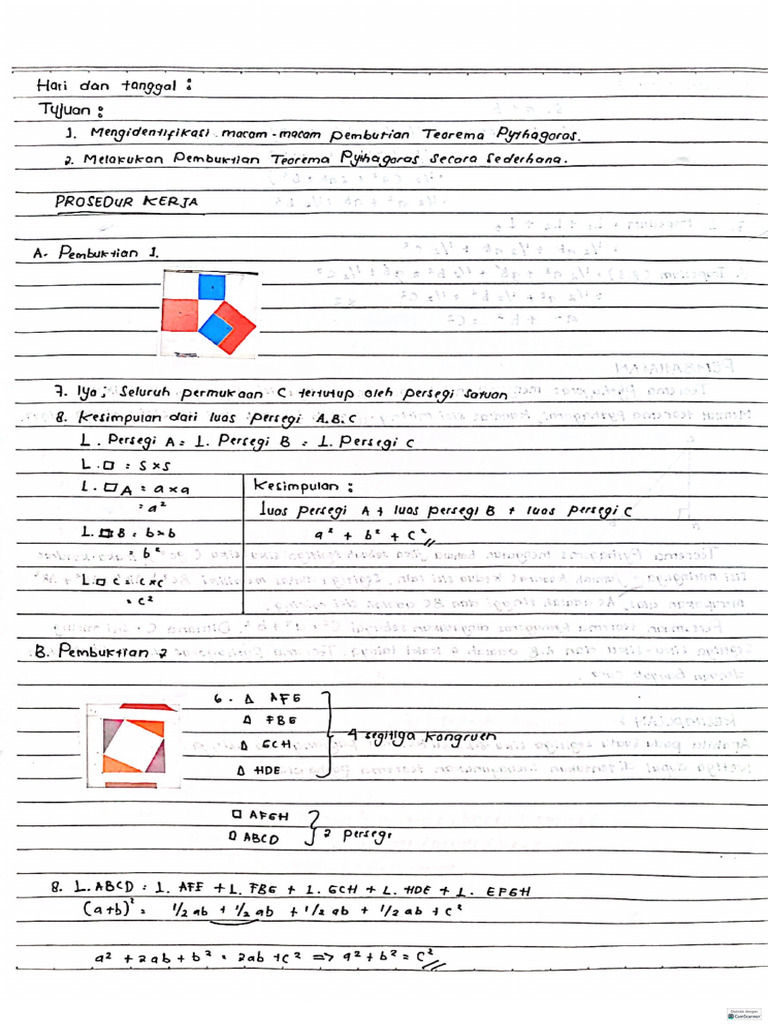 Hari dan tanggal :
Tujuan :
1. Mengidentifikasi macam-macam pembuktian Teorema Pythagoras.
2. Melakukan Pembuktian Teorema Pythagoras secara sederhana.
PROSEDUR KERJA
A. Pembuktian 1.
7. Iya, Seluruh permukaan C tertutup oleh persegi satuan
8. Kesimpulan dari luas persegi A.B.C
L. Persegi A = L. Persegi B = L. Persegi C
L.□ = S×S
L.□ A = a×a
= a²
L.□ B = b×b
= b²
L.□ C = C×C
= C²
Kesimpulan :
Luas persegi A + luas persegi B + luas persegi C
a² + b² + C²
B. Pembuktian 2
6. Δ AFE
Δ FBG
Δ GCH
Δ HDE
4 segitiga kongruen
□ AFGH
□ ABCD
2 persegi
8. L.ABCD = L. AFE + L. FBG + L. GCH + L. HDE + L. EFGH
(a+b)² = 1/2 ab + 1/2 ab + 1/2 ab + 1/2 ab + C²
a² + 2ab + b² = 2ab + C² => a² + b² = C²
CamScanner